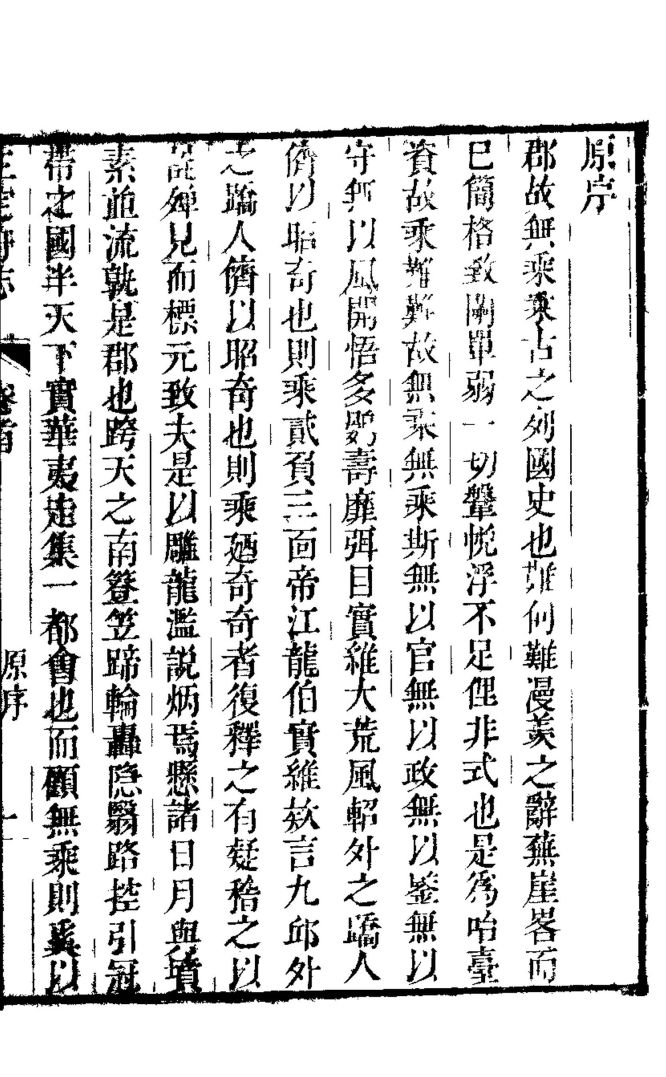 原序
郡故無乘乘古之列國史也難何難漫羨之辭蕪崖畧而
已簡格致闒單弱一切鞶帨浮不足俚非式也是為咍臺
資故乘難難故無乘無乘斯無以官無以政無以鉴無以
守無以風開悟多 壽靡弭目實維大荒風軺外之蹻人
儕以昭奇也則乘貳負三面帝江龍伯實維欬言九邱外
之蹻人儕以昭奇也則乘廼奇奇者復釋之有疑稽之以
 見而標元致夫是以雕龍濫說炳焉懸諸日月與墳
素並流孰是郡也跨天之南簦笠蹄輪轟隐翳路控引冠
帶之國半天下實華夷走集一都會也而顧無乘則奚以
志 卷首 原序 一